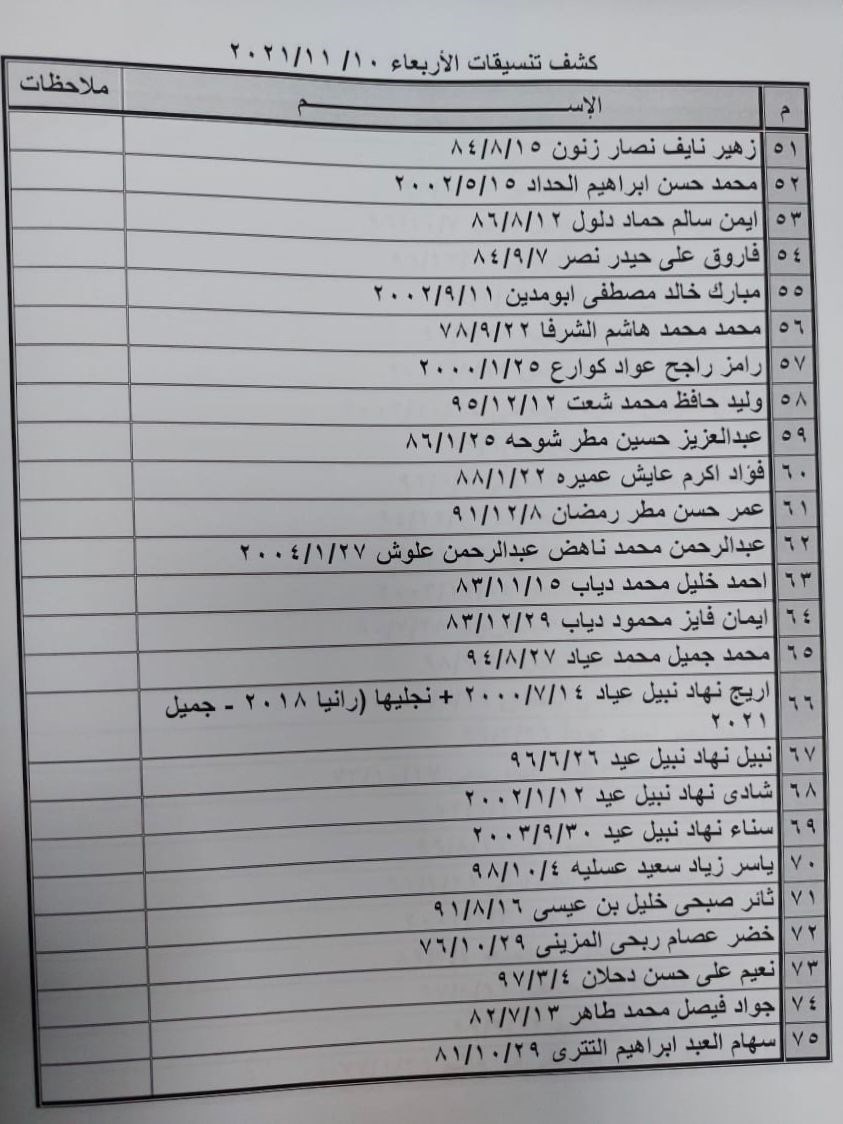 كشف تنسيقات الأربعاء ١٠/ ٢٠٢١/١١
م الإســـــم ملاحظات
٥١ زهير نايف نصار زنون ٨٤/٨/١٥
٥٢ محمد حسن ابراهيم الحداد ٢٠٠٢/٥/١٥
٥٣ ايمن سالم حماد دلول ٨٦/٨/١٢
٥٤ فاروق على حيدر نصر ٨٤/٩/٧
٥٥ مبارك خالد مصطفى ابومدين ٢٠٠٢/٩/١١
٥٦ محمد محمد هاشم الشرفا ٧٨/٩/٢٢
٥٧ رامز راجح عواد كوارع ٢٠٠٠/١/٢٥
٥٨ وليد حافظ محمد شعت ٩٥/١٢/١٢
٥٩ عبدالعزيز حسين مطر شوحه ٨٦/١/٢٥
٦٠ فؤاد اكرم عايش عميره ٨٨/١/٢٢
٦١ عمر حسن مطر رمضان ٩١/١٢/٨
٦٢ عبدالرحمن محمد ناهض عبدالرحمن علوش ٢٠٠٤/١/٢٧
٦٣ احمد خليل محمد دياب ٨٣/١١/١٥
٦٤ ايمان فايز محمود دياب ٨٣/١٢/٢٩
٦٥ محمد جميل محمد عياد ٩٤/٨/٢٧
٦٦ اريج نهاد نبيل عياد ٢٠٠٠/٧/١٤ + نجليها (رانيا ٢٠١٨ - جميل
٢٠٢١
٦٧ نبيل نهاد نبيل عيد ٩٦/٦/٢٦
٦٨ شادى نهاد نبيل عيد ٢٠٠٢/١/١٢
٦٩ سناء نهاد نبيل عيد ٢٠٠٣/٩/٣٠
٧٠ ياسر زياد سعيد عسليه ٩٨/١٠/٤
٧١ ثائر صبحى خليل بن عيسى ٩١/٨/١٦
٧٢ خضر عصام ربحى المزينى ٧٦/١٠/٢٩
٧٣ نعيم على حسن دحلان ٩٧/٣/٤
٧٤ جواد فيصل محمد طاهر ٨٢/٧/١٣
٧٥ سهام العبد ابراهيم التترى ٨١/١٠/٢٩